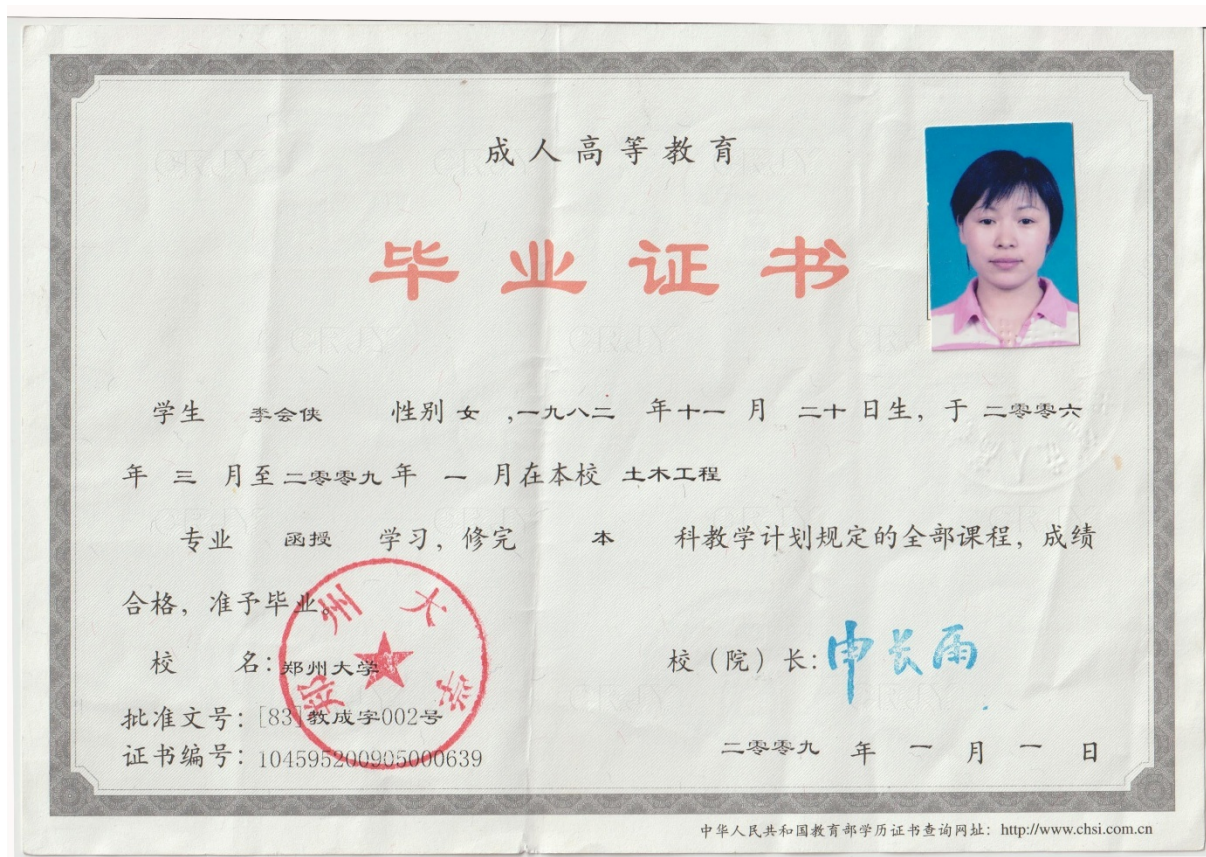 成人高等教育
毕业证书
学生 李会侠 性别 女 ,一九八二 年十一 月 二十 日生, 于 二零零六
年 三 月至 二零零九 年 一 月在本校 土木工程
专业 函授 学习, 修完 本 科教学计划规定的全部课程, 成绩
合格, 准予毕业。
校 名: 郑州大学
校 (院) 长: 申长雨
郑州大学
批准文号: [83]教成字002号
证书编号: 104595200905000639
二零零九 年 一 月 一 日
中华人民共和国教育部学历证书查询网址: http://www.chsi.com.cn